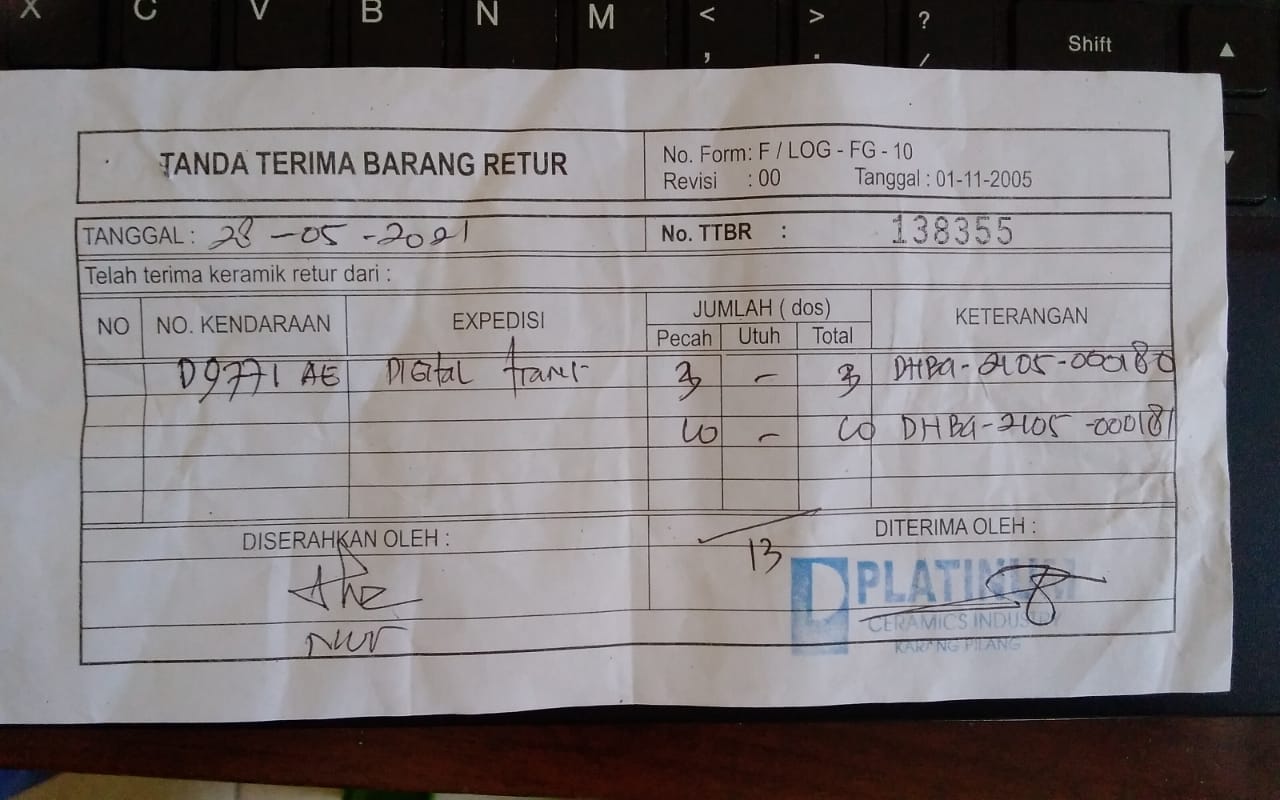 X C V B N M < , > . ? / Shift ▲
▼
TANDA TERIMA BARANG RETUR
No. Form: F / LOG - FG - 10
Revisi : 00 Tanggal : 01-11-2005
TANGGAL : 28 -05 -2021
No. TTBR : 138355
Telah terima keramik retur dari :
NO NO. KENDARAAN EXPEDISI JUMLAH ( dos) KETERANGAN
Pecah Utuh Total
D9771 AE Digital trans 3 - 3 DHBG-2105-000180
10 - 10 DHBG-2105-000181
DISERAHKAN OLEH : DITERIMA OLEH :
13
PLATINUM
CERAMICS INDUSTRY
KARANG PILANG